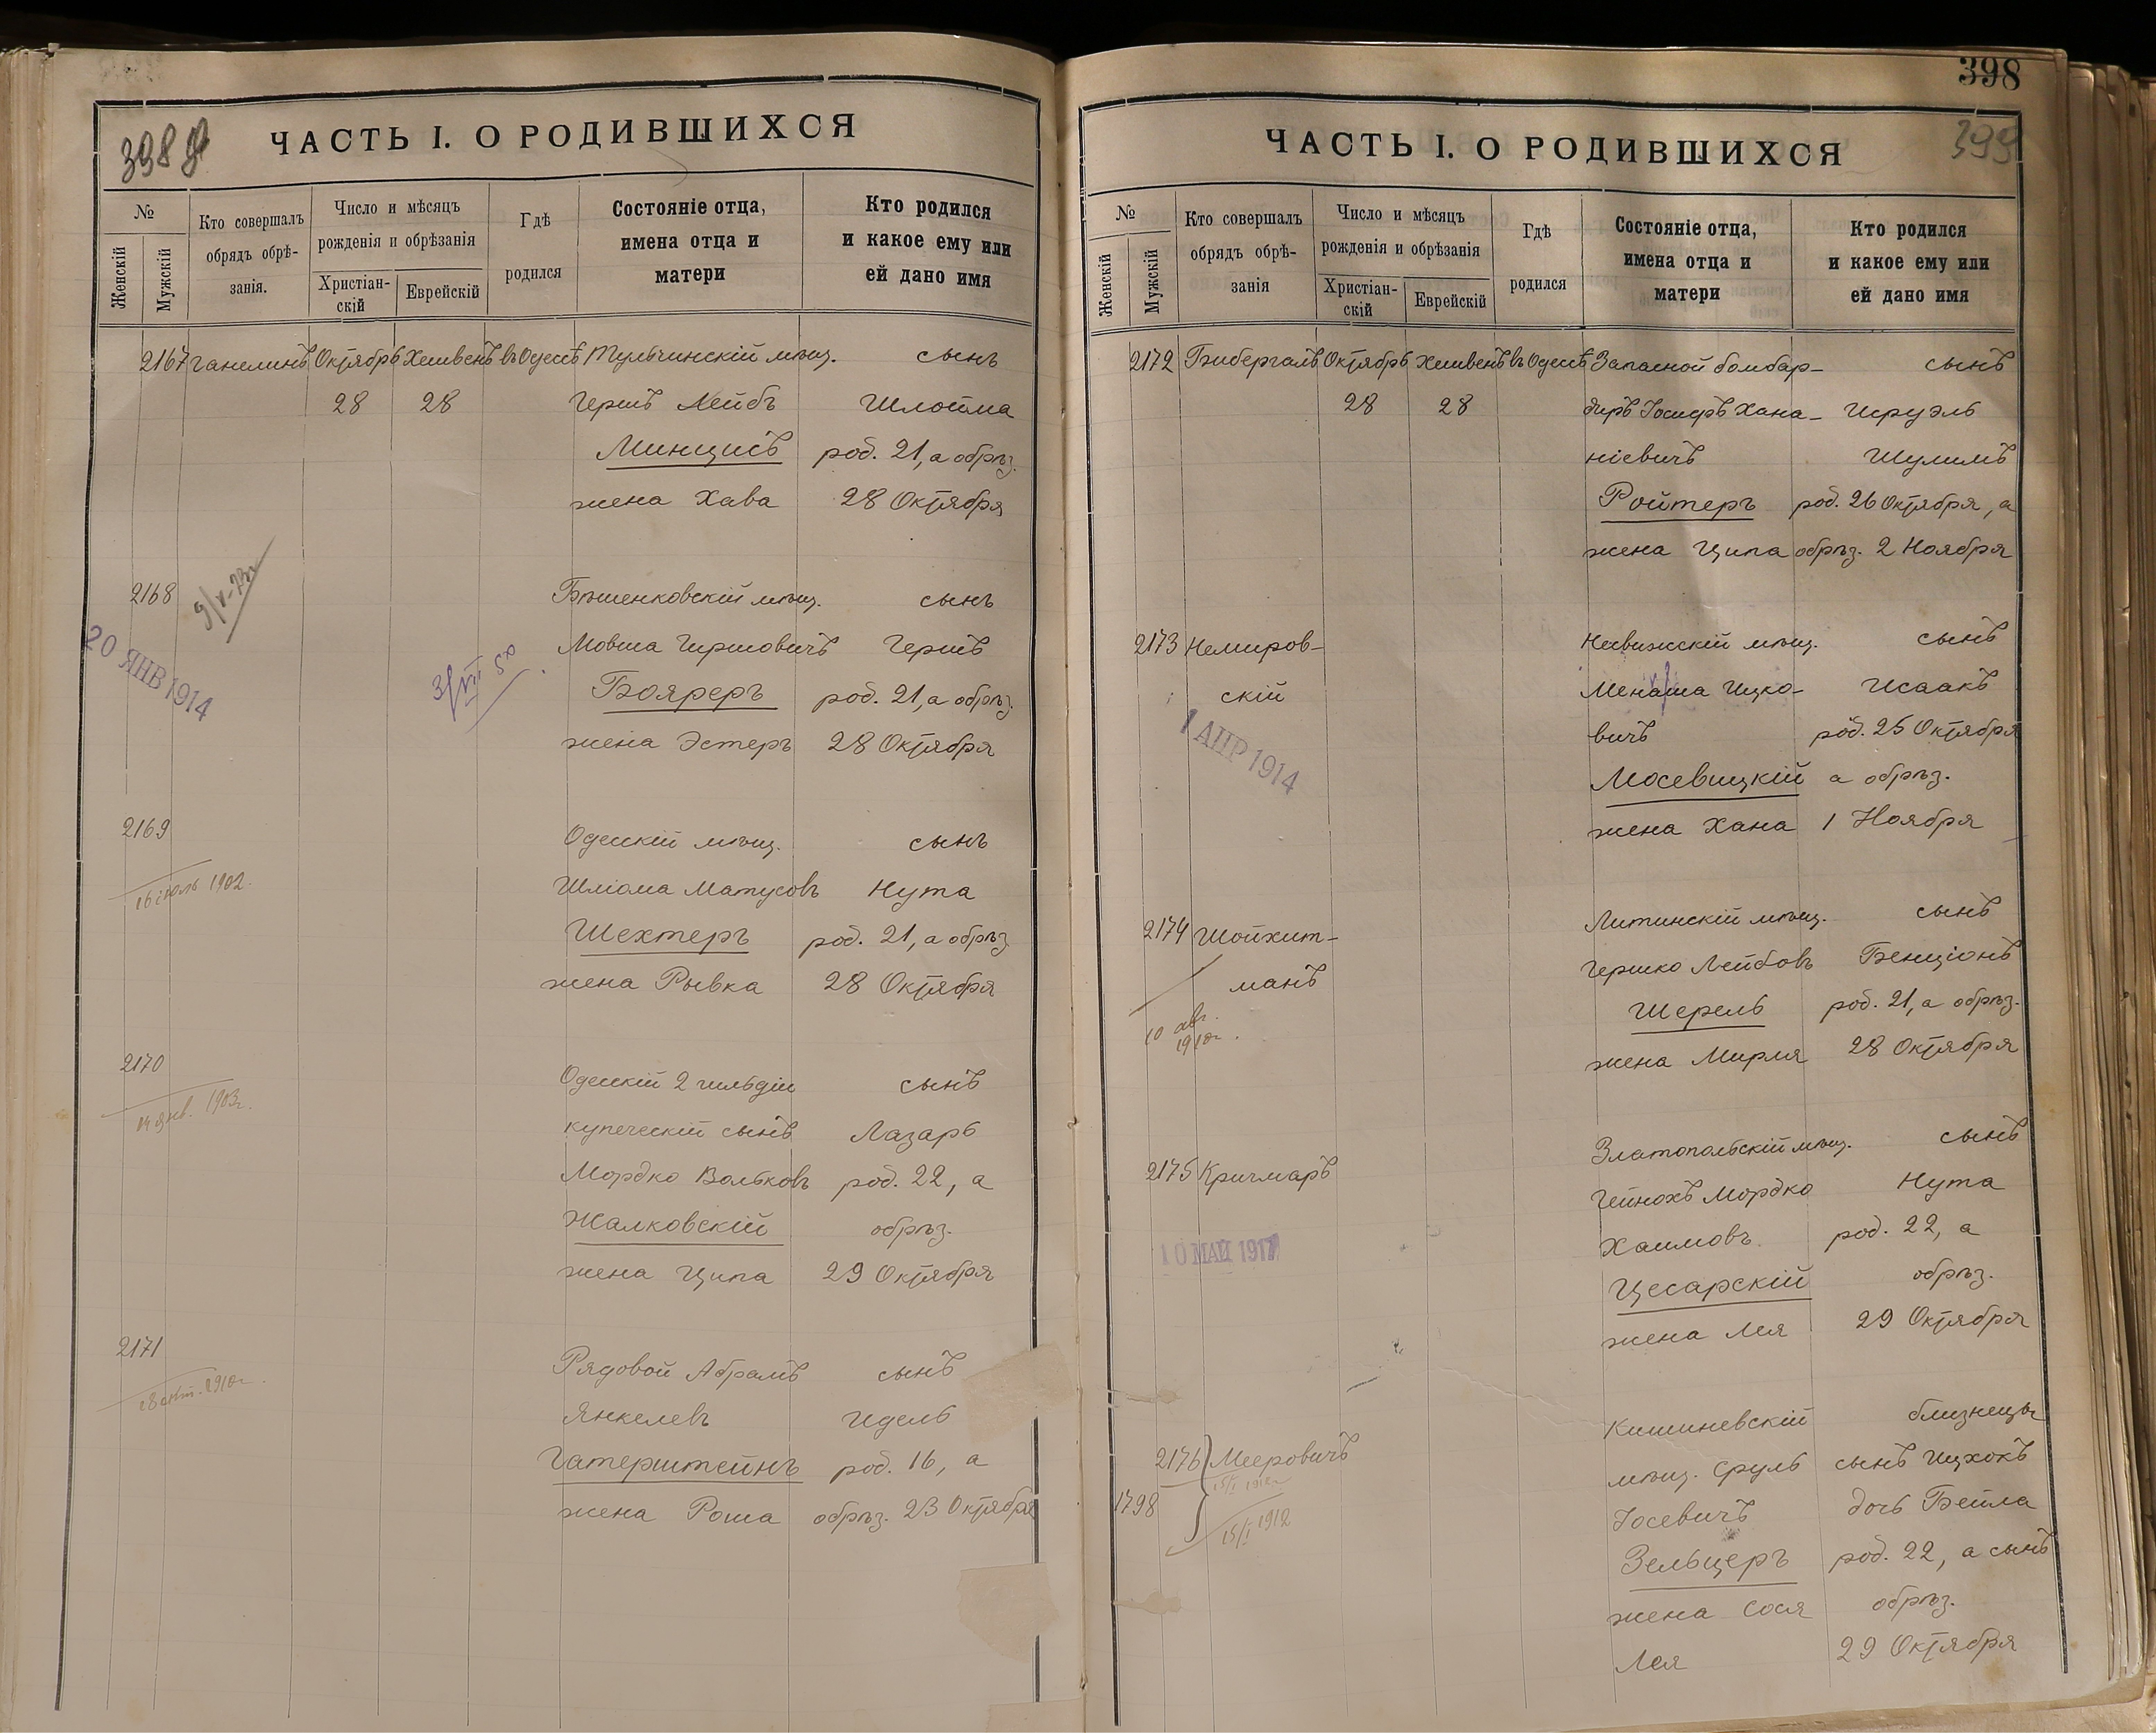 398
ЧАСТЬ I. О РОДИВШИХСЯ
№
Женскій
Мужскій
Кто совершалъ
обрядъ обрѣ-
занія.
Число и мѣсяцъ
рожденія и обрѣзанія
Христіан-
скій
Еврейскій
Гдѣ
родился
Состояніе отца,
имена отца и
матери
Кто родился
и какое ему или
ей дано имя
2167 Ганелинъ Октябрь Хешвенъ въ Одессѣ Тульчинскій мѣщ. сынъ
28 28 Гершъ Лейбъ Шлойма
Минцисъ род. 21, а обрѣз.
жена Хава 28 Октября
2168 Бѣшенковскій мѣщ. сынъ
9/V-73г
20 ЯНВ 1914
Мовша Гиршовичъ Гершъ
3/VII 50
Бояреръ род. 21, а обрѣз.
жена Эстеръ 28 Октября
2169 Одесскій мѣщ. сынъ
16 іюль 1902.
Шліома Матусовъ Нута
Шехтеръ род. 21, а обрѣз.
жена Рывка 28 Октября
2170 Одесскій 2 гильдіи сынъ
14 янв. 1903г.
купеческій сынъ Лазарь
Мордко Вольковъ род. 22, а
Жалковскій обрѣз.
жена Ципа 29 Октября
2171 Рядовой Абрамъ сынъ
1910г.
Янкелевъ Идель
Гатерштейнъ род. 16, а
жена Роша обрѣз. 23 Октября
398
399
ЧАСТЬ I. О РОДИВШИХСЯ
№
Женскій
Мужскій
Кто совершалъ
обрядъ обрѣ-
занія
Число и мѣсяцъ
рожденія и обрѣзанія
Христіан-
скій
Еврейскій
Гдѣ
родился
Состояніе отца,
имена отца и
матери
Кто родился
и какое ему или
ей дано имя
2172 Бибергалъ Октябрь Хешвенъ въ Одессѣ Запасной бомбар- сынъ
28 28 диръ Іосифъ Хана- Исруэль
ніевичъ Шулимъ
Ройтеръ род. 26 Октября, а
жена Ципа обрѣз. 2 Ноября
2173 Немиров- Несвижскій мѣщ. сынъ
скій Менаша Ицко- Исаакъ
1 АПР 1914
вичъ род. 25 Октября
Мосевицкій а обрѣз.
жена Хана 1 Ноября
2174 Шойхит- Литинскій мѣщ. сынъ
манъ Гершко Лейбовъ Бенціонъ
10 авг.
1910г.
Шерель род. 21, а обрѣз.
жена Мирля 28 Октября
2175 Кричмаръ Златопольскій мѣщ. сынъ
Гейнохъ Мордко Нута
Хаимовъ род. 22, а
10 МАЙ 1917
Цесарскій обрѣз.
жена Лея 29 Октября
Кишиневскій близнецы
2176 Мееровичъ мѣщ. Сруль сынъ Ицхокъ
15/I 1912г
1798 Іосевичъ дочь Бейла
15/I 1912
Зельцеръ род. 22, а сынъ
жена Сося обрѣз.
Лея 29 Октября